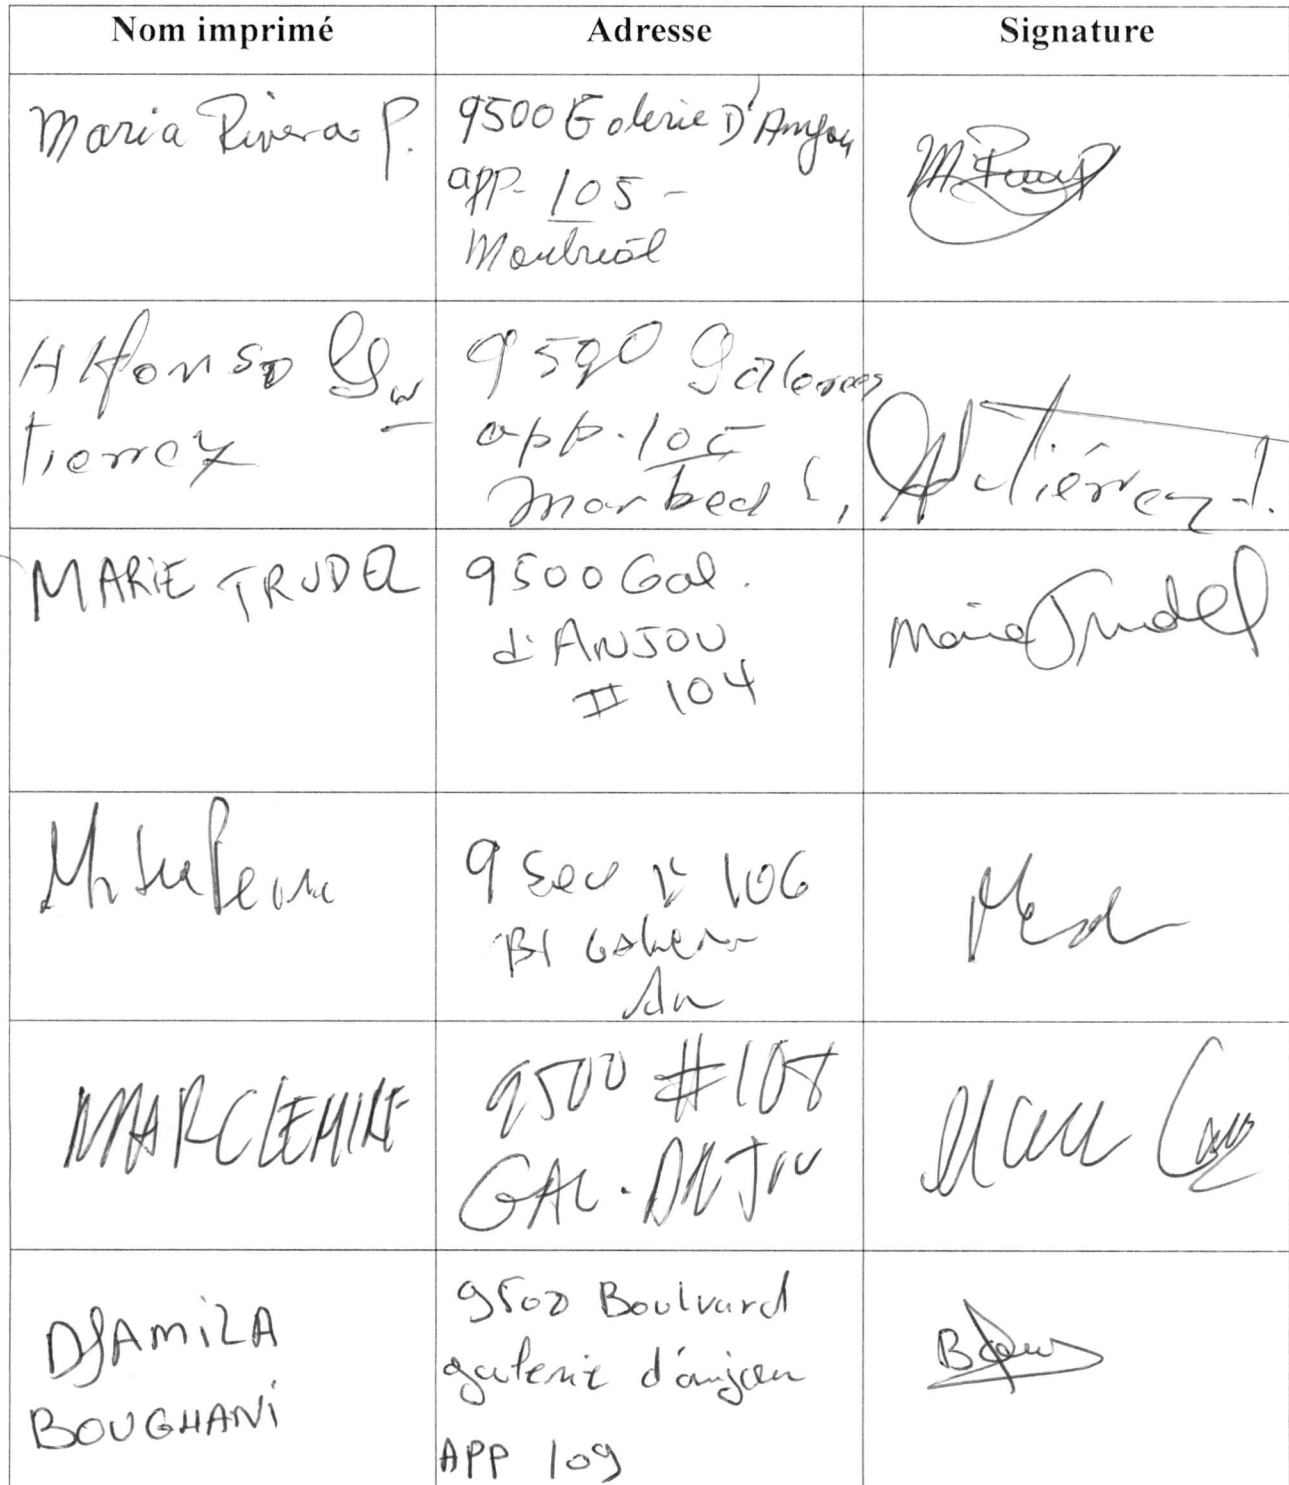 Nom imprimé
Adresse
Signature
Maria Rivera P.
9500 Galerie D'Anjou
app- 105 -
Montreal
Alfonso Gu
tierrez
9500 Galeries
app. 105
M. Rivera P
Gutiérrez J.
MARIE TRUDEL
9500 Gal.
d'ANJOU
# 104
Marie Trudel
106
MARC LEMIRE
9500 #108
GAL. ANJOU
Marc
DJAMILA
BOUGHANI
9500 Boulvard
galerie d'anjou
APP 109